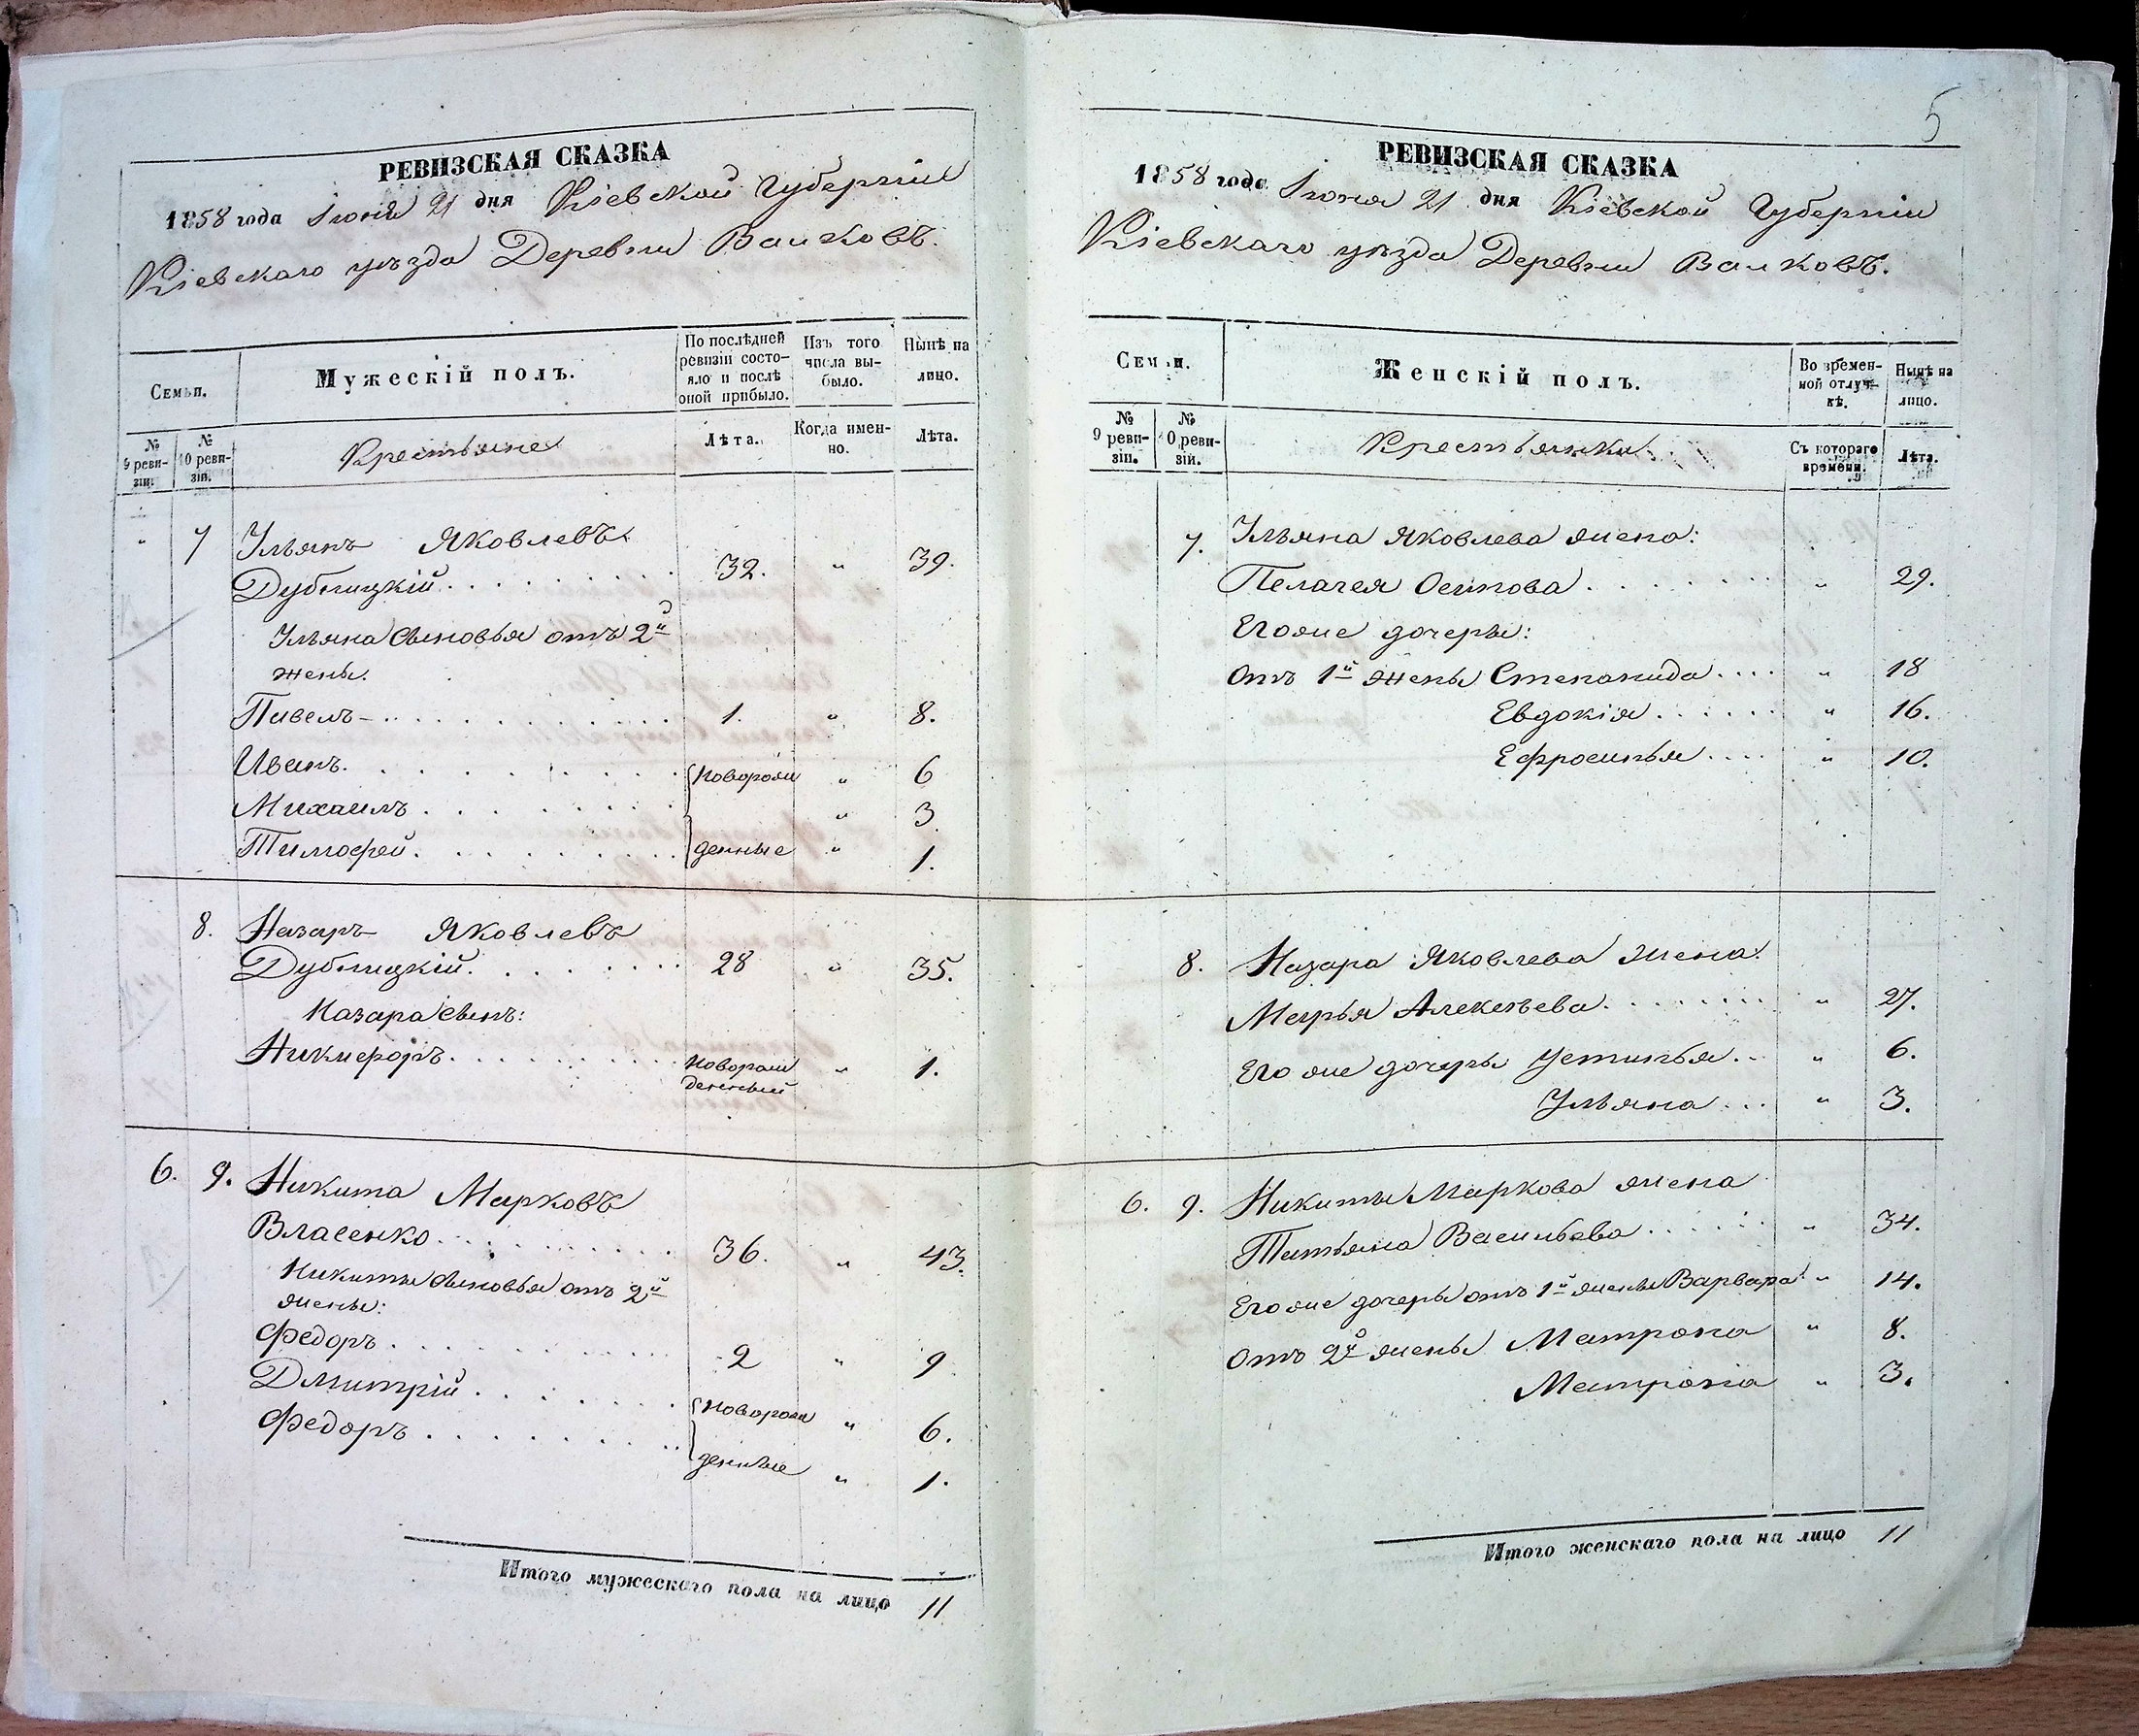 РЕВИЗСКАЯ СКАЗКА
1858 года Іюня 21 дня Кіевской Губерніи
Кіевскаго уѣзда Деревни Вальковъ.
Семьи.
Мужескій полъ.
По послѣдней ревизіи состояло и послѣ оной прибыло.
Изъ того числа выбыло.
Нынѣ на лицо.
№ 9 ревизіи.
№ 10 ревизіи.
Крестьяне
Лѣта.
Когда именно.
Лѣта.
" 7 Ульянъ Яковлевъ
Дубницкій . . . . . . . . . 32. " 39.
Ульяна сыновья отъ 2й
жены.
Павелъ . . . . . . . . . 1. " 8.
Иванъ . . . . . . . . . новорож " 6
Михаилъ . . . . . . . . " 3
Тимофей . . . . . . . . денные " 1.
8. Назаръ Яковлевъ
Дубницкій . . . . . . . 28 " 35.
Назара сынъ:
Никифоръ . . . . . . . . новорож " 1.
денный
6. 9. Никита Марковъ
Власенко . . . . . . . . . 36. " 43.
Никиты сыновья отъ 2й
жены:
Федоръ . . . . . . . . . 2 " 9
Дмитрій . . . . . . . новорож " 6.
Федоръ . . . . . . . . денные " 1.
Итого мужескаго пола на лицо 11
5
РЕВИЗСКАЯ СКАЗКА
1858 года Іюня 21 дня Кіевской Губерніи
Кіевскаго уѣзда Деревни Вальковъ.
Семьи.
Женскій полъ.
Во временной отлучкѣ.
Нынѣ на лицо.
№ 9 ревизіи.
№ 10 ревизіи.
Крестьянки
Съ котораго времени.
Лѣта.
7. Ульяна Яковлева жена:
Пелагея Осипова . . . . . . . " 29.
Его же дочеры:
отъ 1й жены Степанида . . . . " 18
Евдокія . . . . . . " 16.
Ефросинья . . . . " 10.
8. Назара Яковлева жена:
Марья Алексѣева . . . . . . . " 27.
Его же дочеры Устинья . . " 6.
Ульяна . . . " 3.
6. 9. Никиты Маркова жена
Татьяна Васильева . . . . . . " 34.
Его же дочеры отъ 1й жены Варвара " 14.
отъ 2й жены Матрона " 8.
Матрона " 3.
Итого женскаго пола на лицо 11